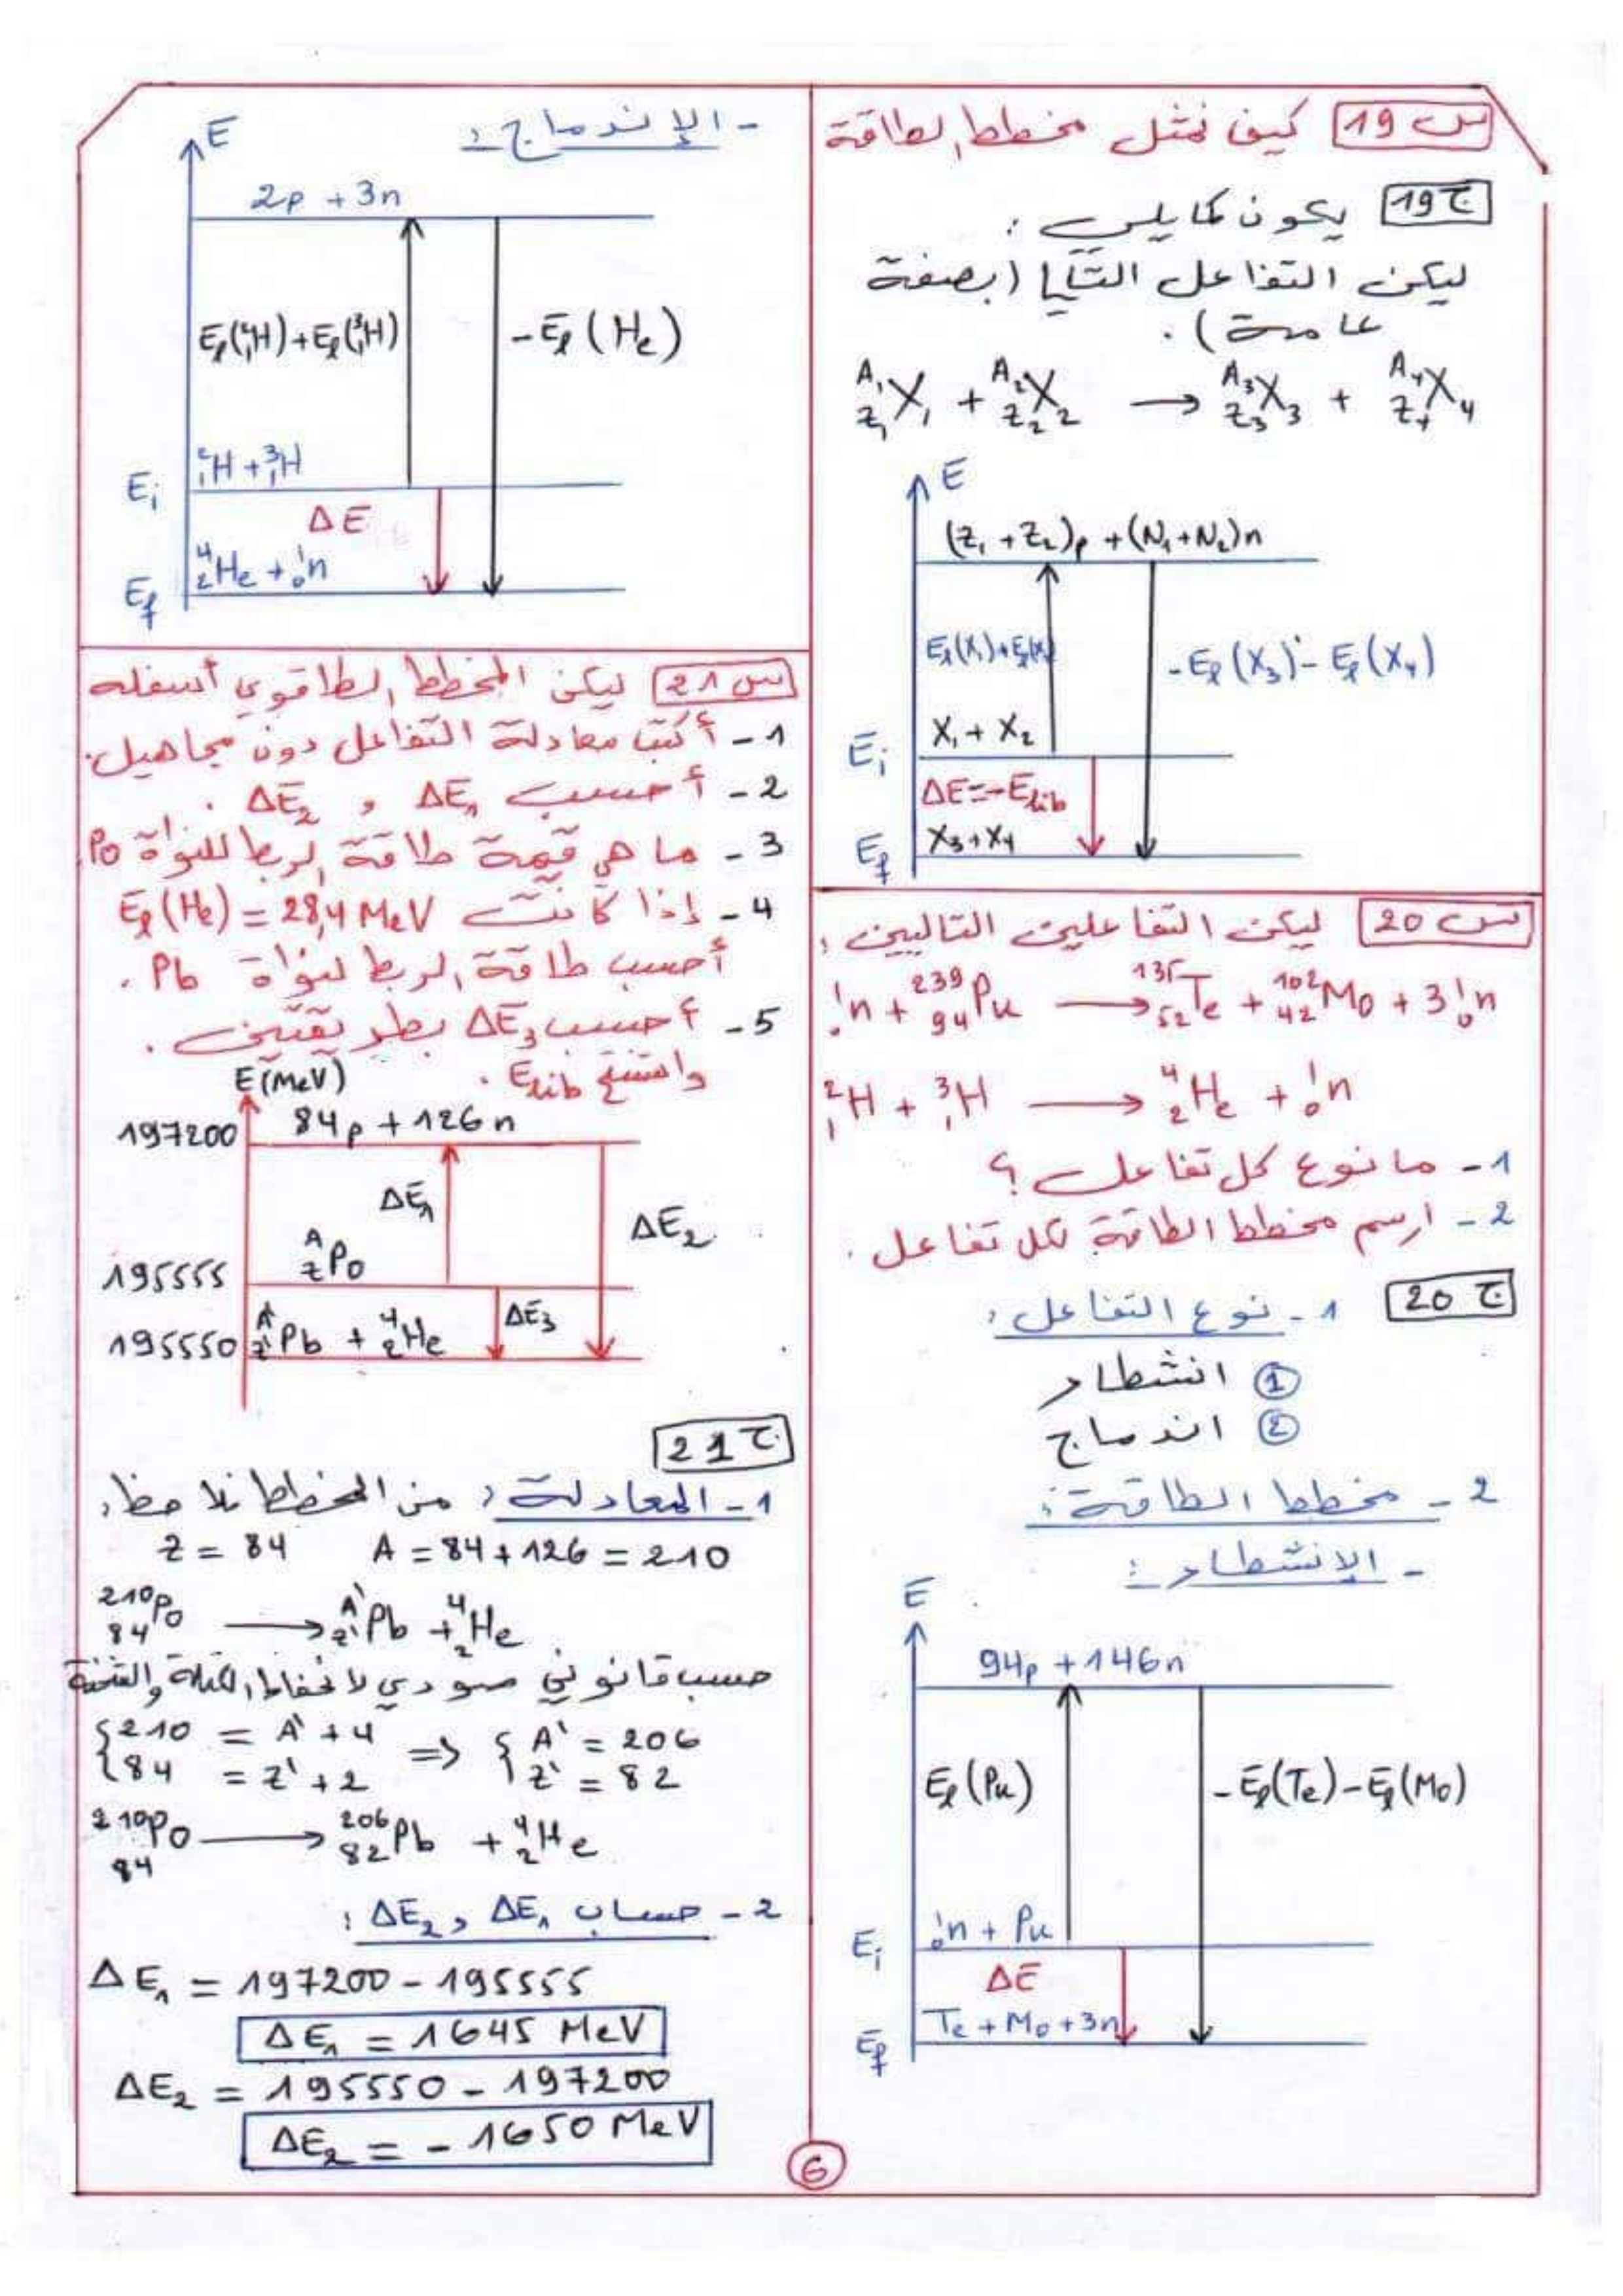 س 19 كيف نمثل مخطط الطاقة
ج 19 يكون كما يلي :
ليكن التفاعل التالي (بصفة
عامة) .
^{A₁}_{Z₁}X₁ + ^{A₂}_{Z₂}X₂ → ^{A₃}_{Z₃}X₃ + ^{A₄}_{Z₄}X₄
E
(Z₁ + Z₂)p + (N₁+N₂)n
El(X₁)+El(X₂
-El(X₃) - El(X₄)
X₁ + X₂
Ei
ΔE=-Elib
X₃+X₄
Ef
س 20 ليكن التفاعلين التاليين :
¹₀n + ²³⁹₉₄Pu → ¹³⁵₅₂Te + ¹⁰²₄₂Mo + 3¹₀n
²₁H + ³₁H → ⁴₂He + ¹₀n
1 - ما نوع كل تفاعل ؟
2 - ارسم مخطط الطاقة لكل تفاعل .
ج 20 1 - نوع التفاعل :
① انشطار
② اندماج
2 - مخطط الطاقة :
- الإنشطار :
E
94p + 146n
El(Pu)
-El(Te)-El(Mo)
¹₀n + Pu
Ei
ΔE
Te + Mo + 3n
Ef
- الإندماج :
E
2p + 3n
El(²₁H)+El(³₁H)
-El(He)
²₁H + ³₁H
Ei
ΔE
⁴₂He + ¹₀n
Ef
س 21 ليكن المخطط الطاقوي أسفله
1 - أكتب معادلة التفاعل دون مجاهيل .
2 - أحسب ΔE₁ و ΔE₂ .
3 - ما هي قيمة طاقة الربط للنواة Po
4 - إذا كانت El(He) = 28,4 MeV
أحسب طاقة الربط لنواة Pb .
5 - أحسب ΔE₃ بطريقتين .
واستنتج Elib .
E(MeV)
197200
84p + 126n
ΔE₁
ΔE₂
^A_Z Po
195555
ΔE₃
^{A'}_{Z'}Pb + ⁴₂He
195550
ج 21
1 - المعادلة : من المخطط نلاحظ :
Z = 84 A = 84 + 126 = 210
²¹⁰₈₄Po → ^{A'}_{Z'}Pb + ⁴₂He
حسب قانوني صودي لانحفاظ الكتلة والشحنة
{210 = A' + 4 => {A' = 206
{84 = Z' + 2 {Z' = 82
²¹⁰₈₄Po → ²⁰⁶₈₂Pb + ⁴₂He
2 - حساب ΔE₁ و ΔE₂ :
ΔE₁ = 197200 - 195555
ΔE₁ = 1645 MeV
ΔE₂ = 195550 - 197200
ΔE₂ = - 1650 MeV
6